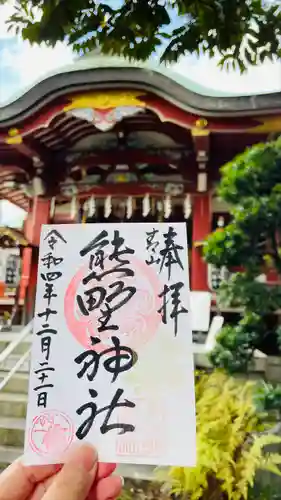 奉拝
青山
熊野神社
令和四年十二月二十二日